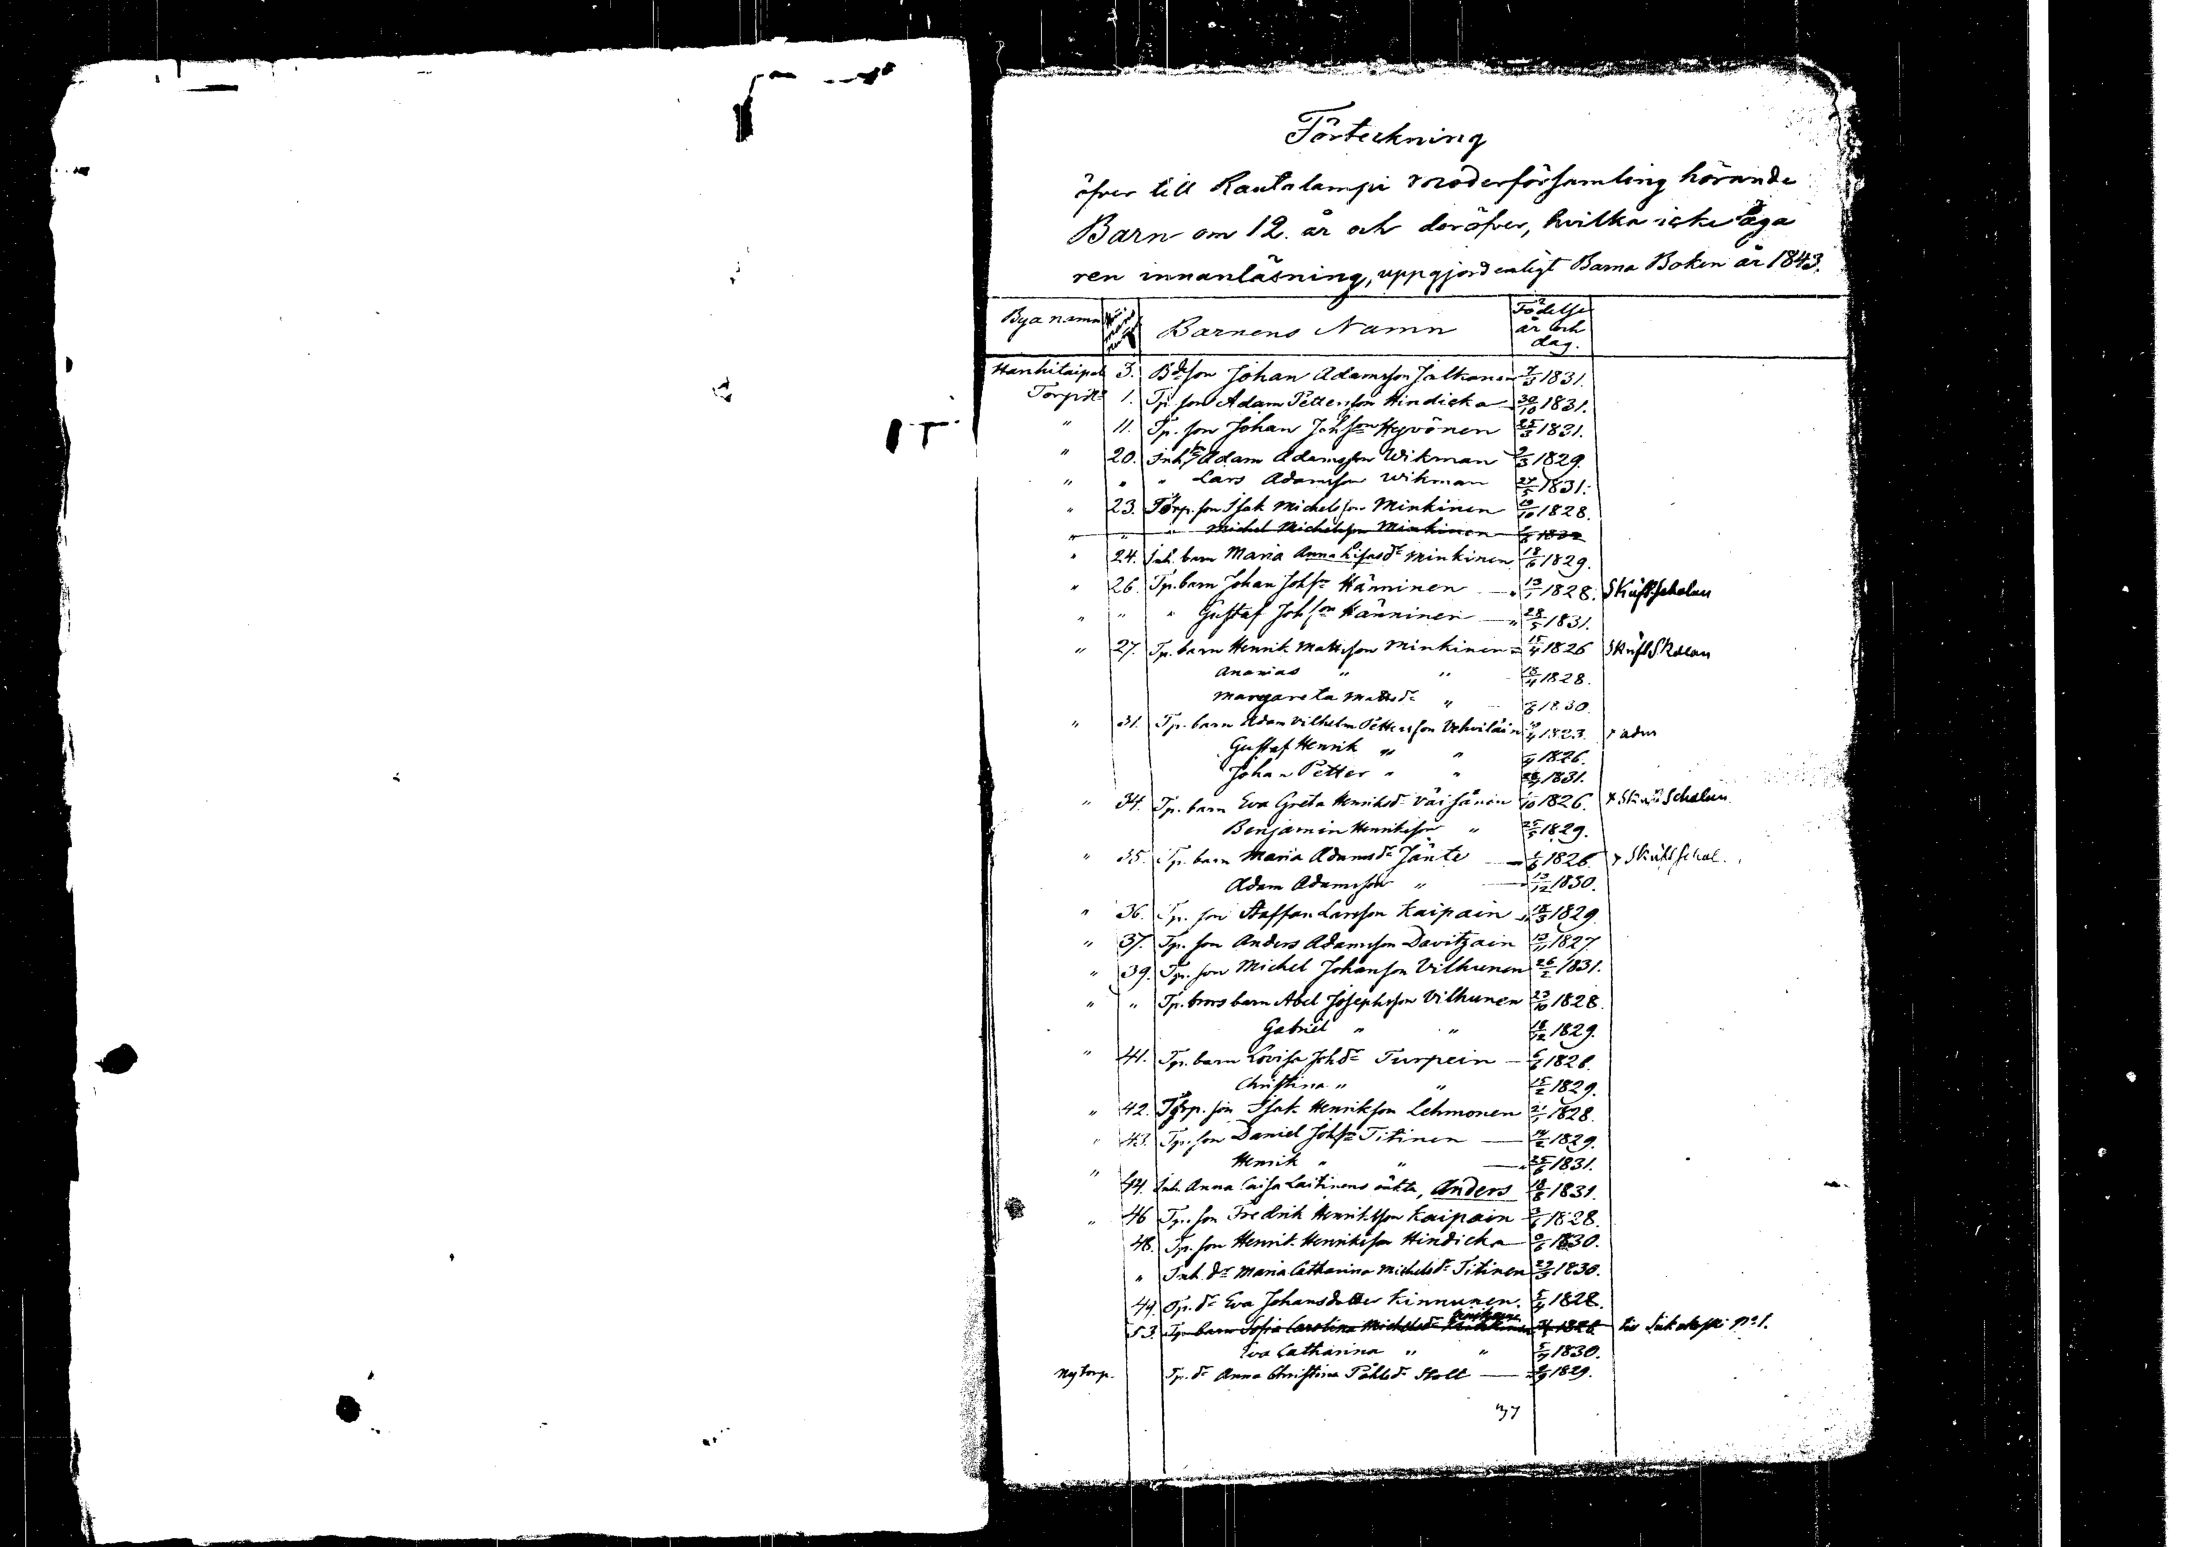 Förteckning
öfver till Rautalampi moderförsamling hörande
Barn om 12. år och deröfver, hvilka icke äga
ren innanläsning, uppgjord enligt Barna Boken år 1843.
Bya namn Barnens Namn Födelse år och dag.
Hankitaipal 3. Bde son Johan Adamsson Jalkanen 7/3 1831.
Torp № 1. Tp. son Adam Pettersson Hindicka 30/10 1831.
" 11. Tp. son Johan Johsson Hyvönen 25/3 1831.
" 20. Inh. son Adam Adamsson Wikman 2/3 1829.
" " " Lars Adamsson Wikman 27/5 1831.
" 23. Torp. son Isak Michelsson Minkinen 19/10 1828.
" " " Michel Michelsson Minkinen 1832
" 24. Inh. barn Maria Anna Lisas dr Minkinen 18/6 1829.
" 26. Tp. barn Johan Johs. Hänninen 13/1 1828.
" " " Gustaf Johsson Hänninen 28/5 1831.
" 27. Tp. barn Henrik Mattsson Minkinen 15/4 1826
Ananias " " 18/4 1828.
Margareta Mattsdr " 1830.
" 31. Tp. barn Adam Vilhelm Pettersson Vehviläin 1823.
Gustaf Henrik " " 1826.
Johan Petter " " 1831.
" 34. Tp. barn Eva Greta Henriksdr Väisänen 1826.
Benjamin Henriksson " 25/5 1829.
" 35. Tp. barn Maria Adamsdr Jänte 1/6 1826.
Adam Adamsson " 13/12 1830.
" 36. Tp. son Staffan Larsson Kaipain 18/3 1829.
" 37. Tp. son Anders Adamsson Davitzain 13/11 1827
" 39. Tp. son Michel Johansson Vilhunen 26/2 1831.
" " Tp. brors barn Abel Josephsson Vilhunen 23/10 1828.
Gabriel " " 18/12 1829.
" 41. Tp. barn Lovisa Johdr Turpein 1826.
Christina " " 15/2 1829.
" 42. Torp. son Isak Henriksson Lehmonen 21/1 1828.
" 43. Tp. son Daniel Johs. Titinen 14/2 1829.
Henrik " " 25/6 1831.
" 44. Inh. Anna Caisa Laitinens oäkta, Anders 18/8 1831.
" 46 Tp. son Fredrik Henriksson Kaipain 1828.
48. Tp. son Henrik Henriksson Hindicka 1830.
" Inh. dr Maria Catharina Michelsdr Titinen 29/3 1830.
49. Tp. dr Eva Johansdotter Kinnunen. 1828.
53. Tp. barn Sofia Carolina Michelsdr
Eva Catharina " " 1830.
Nytorp. Tp. dr Anna Christina Påhlsdr Stolt 1829.
37